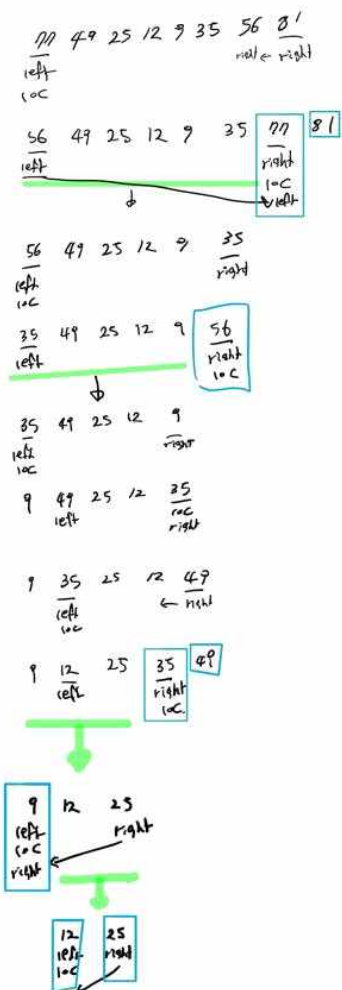 77 49 25 12 9 35 56 81
left right ← right
loc
56 49 25 12 9 35 77 81
left right
loc
left
56 49 25 12 9 35
left right
loc
35 49 25 12 9 56
left right
loc
35 49 25 12 9
left right
loc
9 49 25 12 35
left loc
right
9 35 25 12 49
left ← right
loc
9 12 25 35 49
left right
loc.
9 12 25
left right
loc
right
12 25
left right
loc